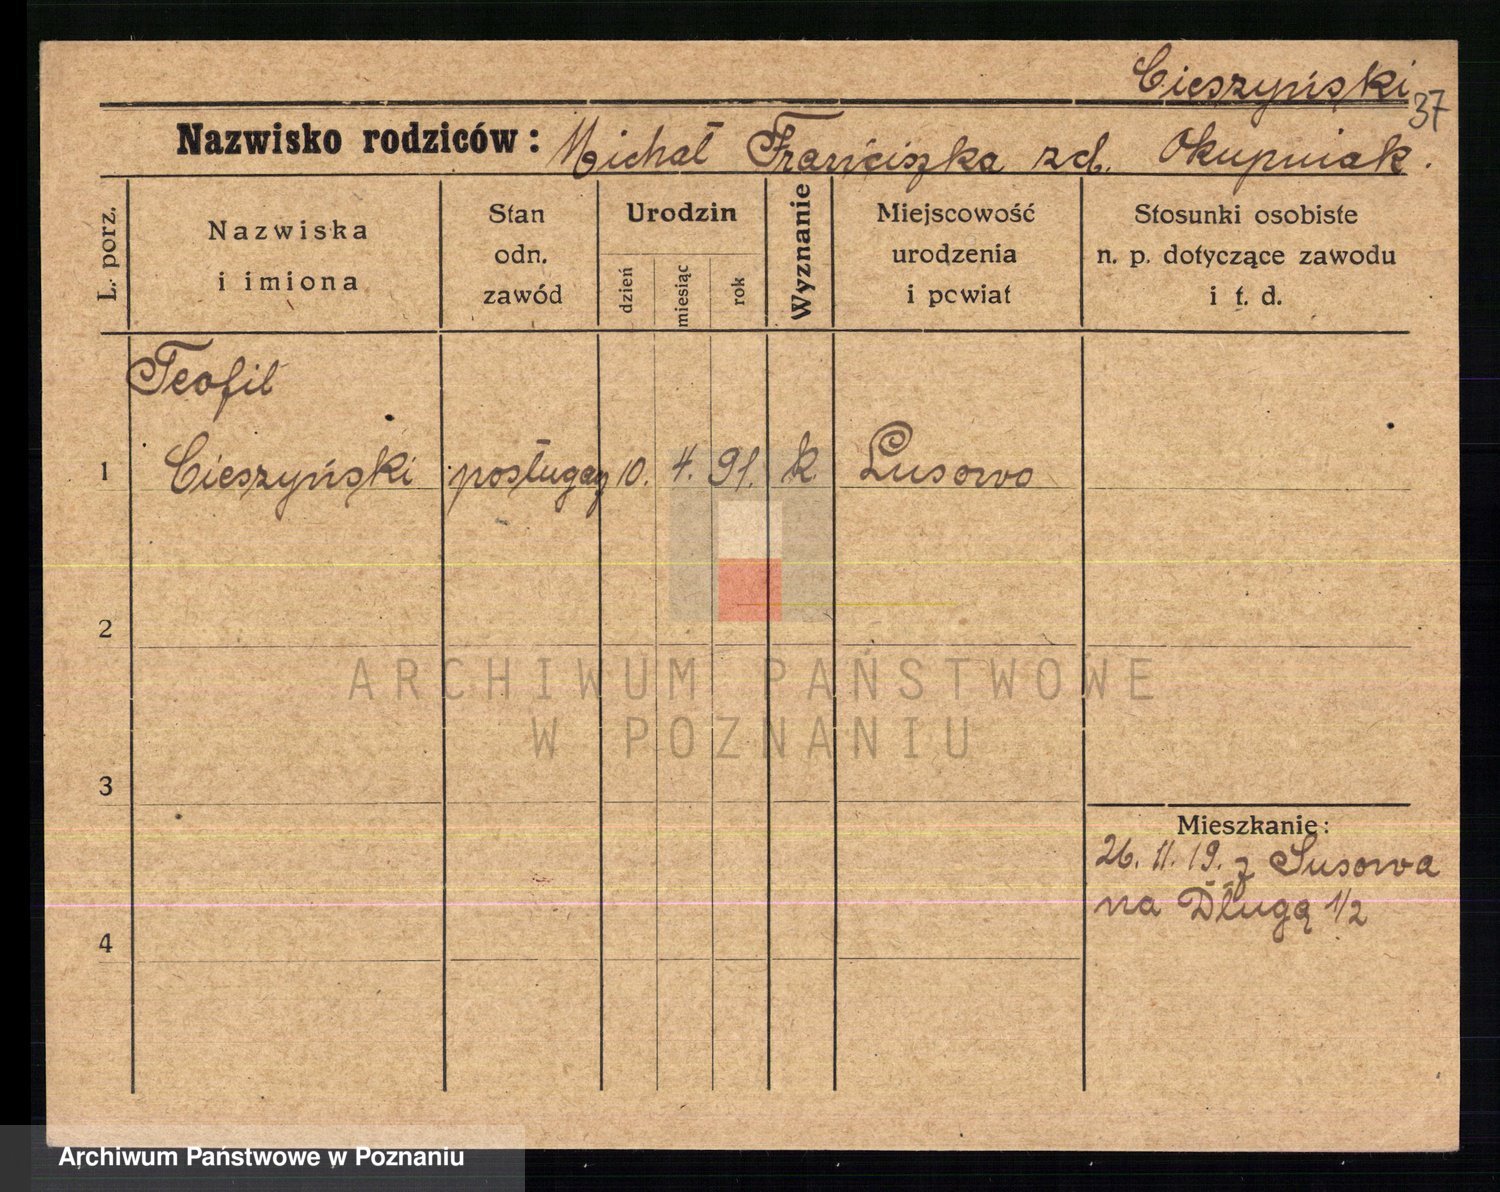 Cieszyński
37
Nazwisko rodziców: Michał Franciszka zd. Okupniak.
L. porz.
Nazwiska
i imiona
Stan
odn.
zawód
Urodzin
dzień
miesiąc
rok
Wyznanie
Miejscowość
urodzenia
i powiat
Stosunki osobiste
n. p. dotyczące zawodu
i t. d.
Teofil
1 Cieszyński posługacz 10. 4. 91. k. Lusowo
2
ARCHIWUM PAŃSTWOWE
W POZNANIU
3
Mieszkanie:
26. 11. 19. z Lusowa
na Długą 1/2
4
Archiwum Państwowe w Poznaniu